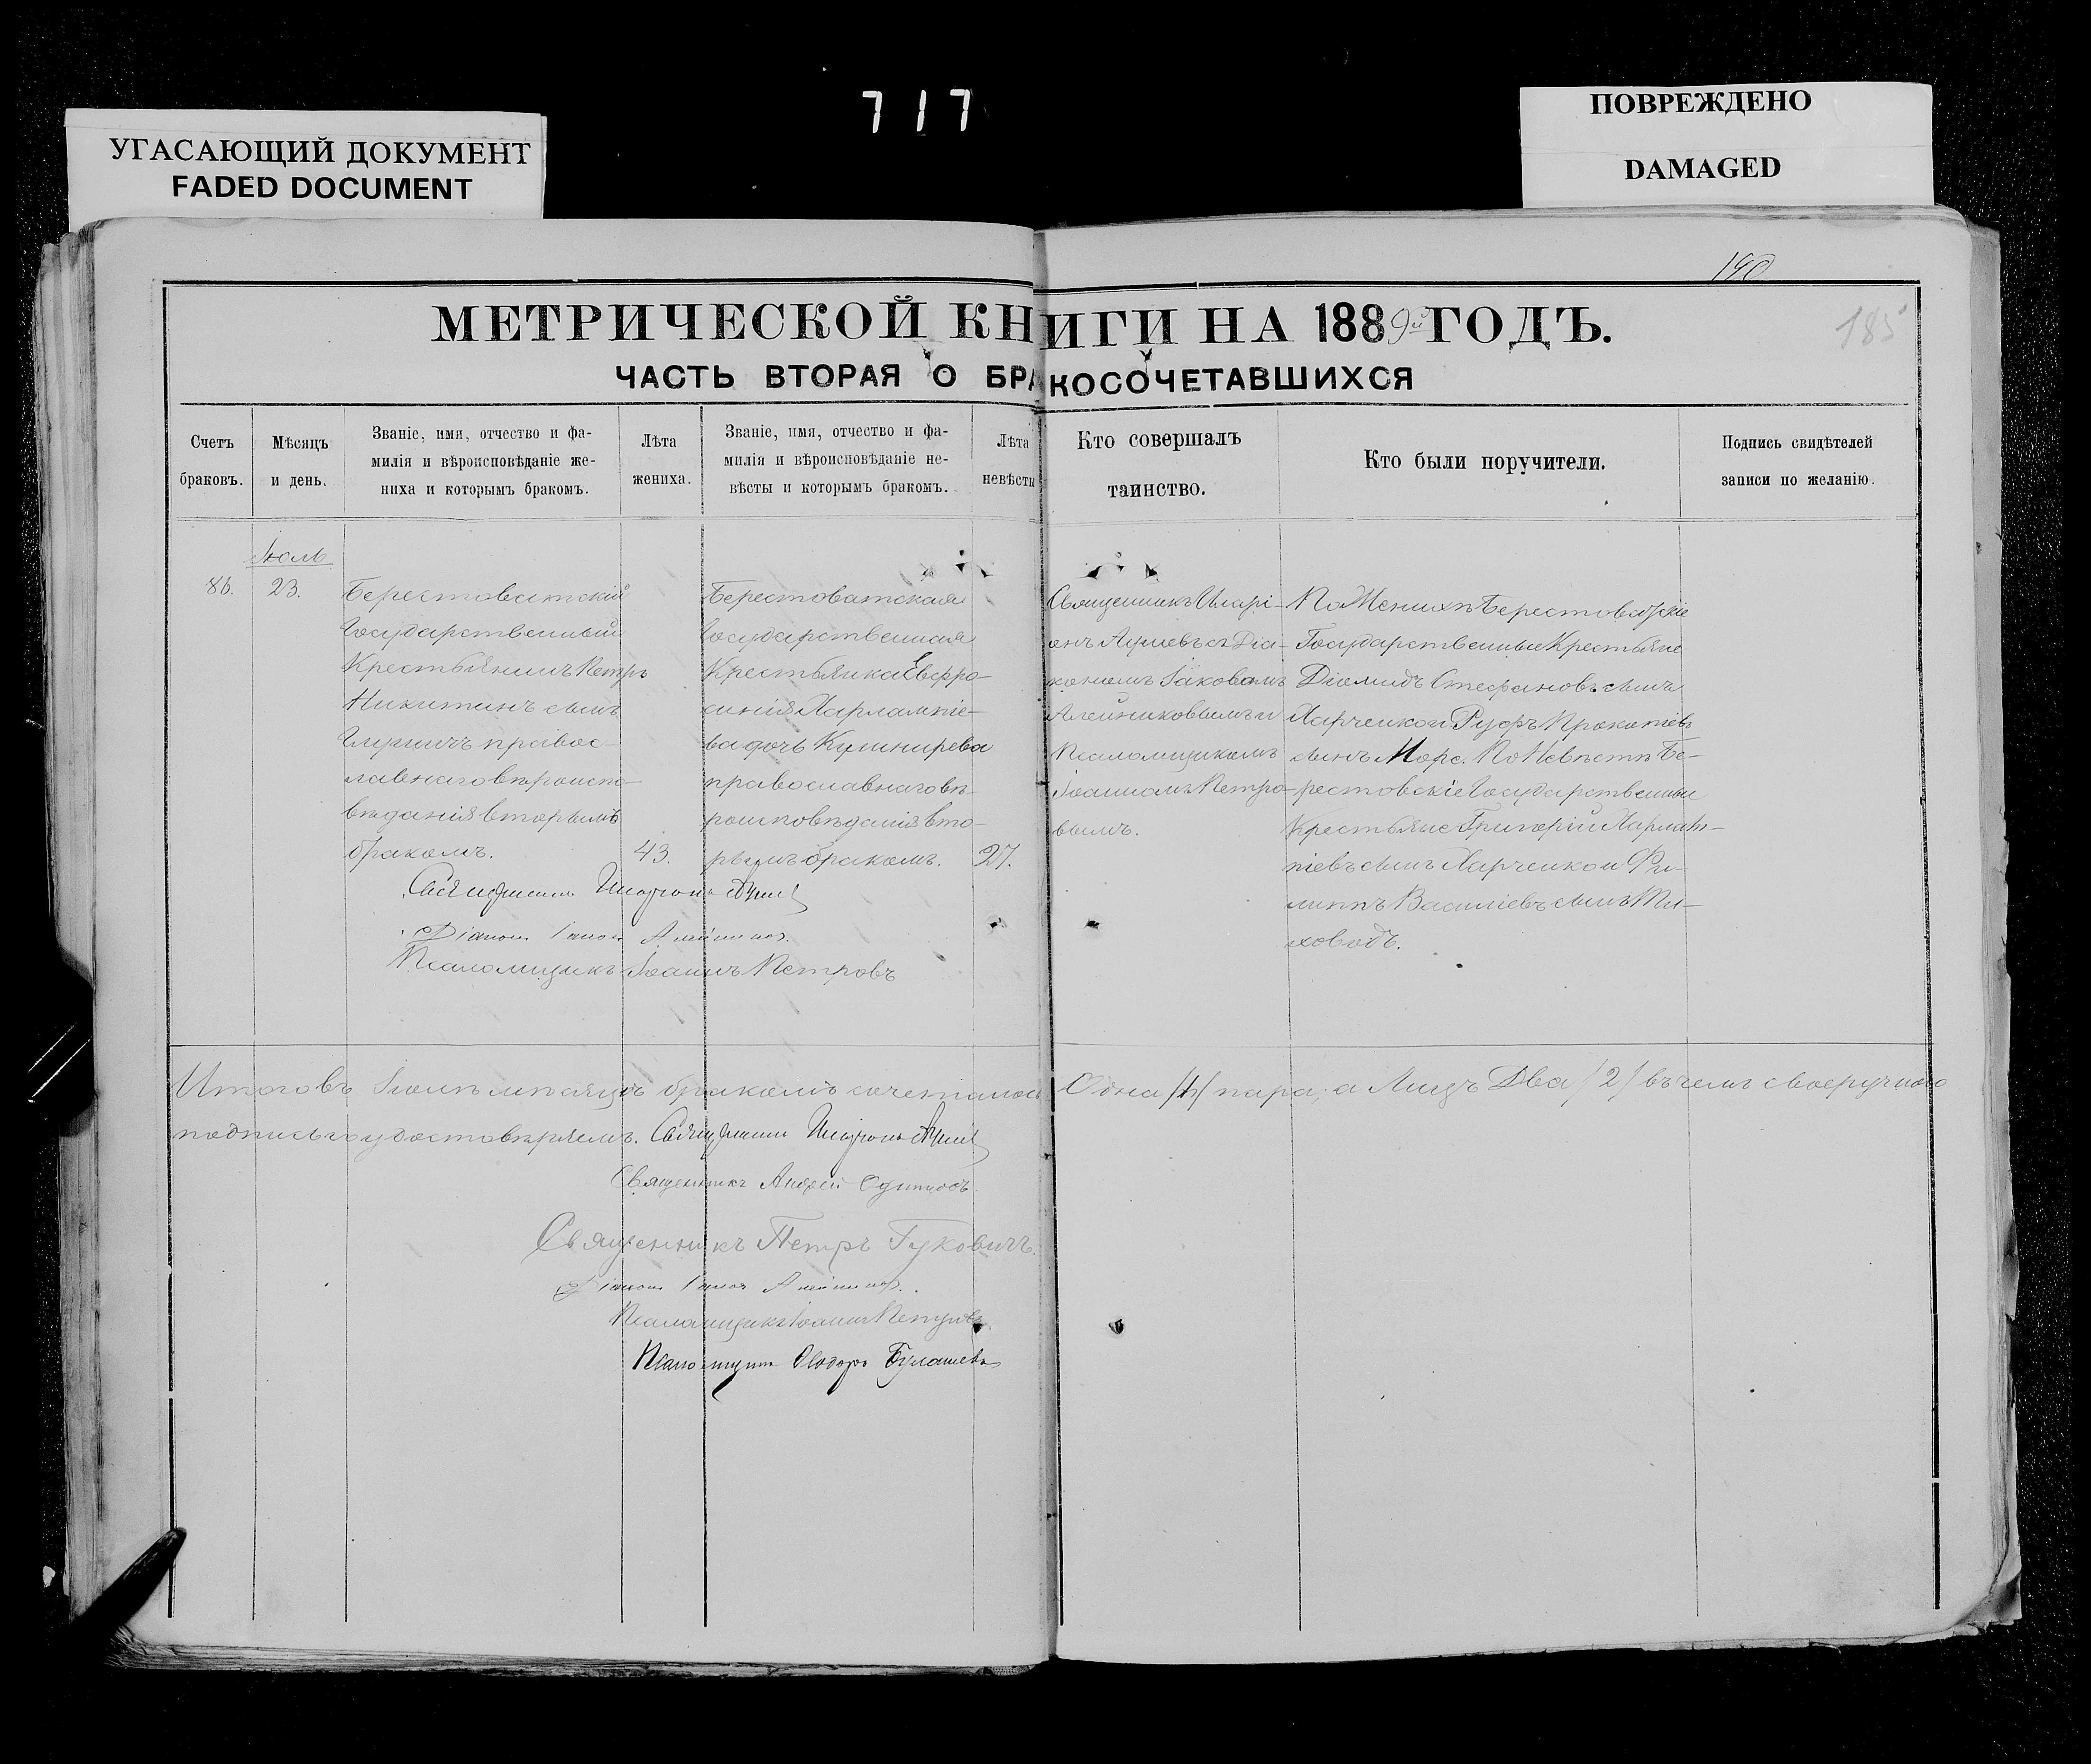 717
УГАСАЮЩИЙ ДОКУМЕНТ
FADED DOCUMENT
ПОВРЕЖДЕНО
DAMAGED
190
185
МЕТРИЧЕСКОЙ КНИГИ НА 1889й ГОДЪ.
ЧАСТЬ ВТОРАЯ О БРАКОСОЧЕТАВШИХСЯ
Счетъ
браковъ.
Мѣсяцъ
и день.
Званіе, имя, отчество и фа-
милія и вѣроисповѣданіе же-
ниха и которымъ бракомъ.
Лѣта
жениха.
Званіе, имя, отчество и фа-
милія и вѣроисповѣданіе не-
вѣсты и которымъ бракомъ.
Лѣта
невѣсты
Кто совершалъ
таинство.
Кто были поручители.
Подпись свидѣтелей
записи по желанію.
Іюль
86.
23.
Берестоватскій
Государственный
Крестьянинъ Петръ
Никитинъ сынъ
правос-
лавнаго вѣроиспо-
вѣданія вторымъ
бракомъ.
43.
Берестоватская
Государственная
Крестьянка Евфро-
синія Харлампіе-
ва дочь Кушнирева
православнаго вѣ-
роисповѣданія вто-
рымъ бракомъ.
27.
Священникъ Иларі-
онъ съ Діа-
кономъ Іаковомъ
Алейниковымъ и
Псаломщикомъ
Іоанномъ Петро-
вымъ.
По Женихѣ Берестоватскіе
Государственные Крестьяне
Діомидъ Стефановъ сынъ
Харченко и Руфъ Прокопіевъ
сынъ Морс. По Невѣстѣ Бе-
рестовскіе Государственные
Крестьяне Григорій Харлам-
піевъ сынъ Харченко и Фи-
липпъ Василіевъ сынъ Ти-
ховодъ.
Священникъ Иларіонъ
Діаконъ Іаковъ Алейниковъ.
Псаломщикъ Іоаннъ Петровъ
Итого въ Іюлѣ мѣсяцѣ бракомъ сочеталось Одна /1/ пара, а Лицъ Два /2/ въ чемъ своеручною
подписью удостовѣряемъ. Священникъ Иларіонъ
Священникъ Андрей Одинцовъ
Священникъ Петръ Гуковичъ.
Діаконъ Іаковъ Алейниковъ.
Псаломщикъ Іоаннъ Петровъ
Псаломщикъ Ѳеодоръ Булашевъ